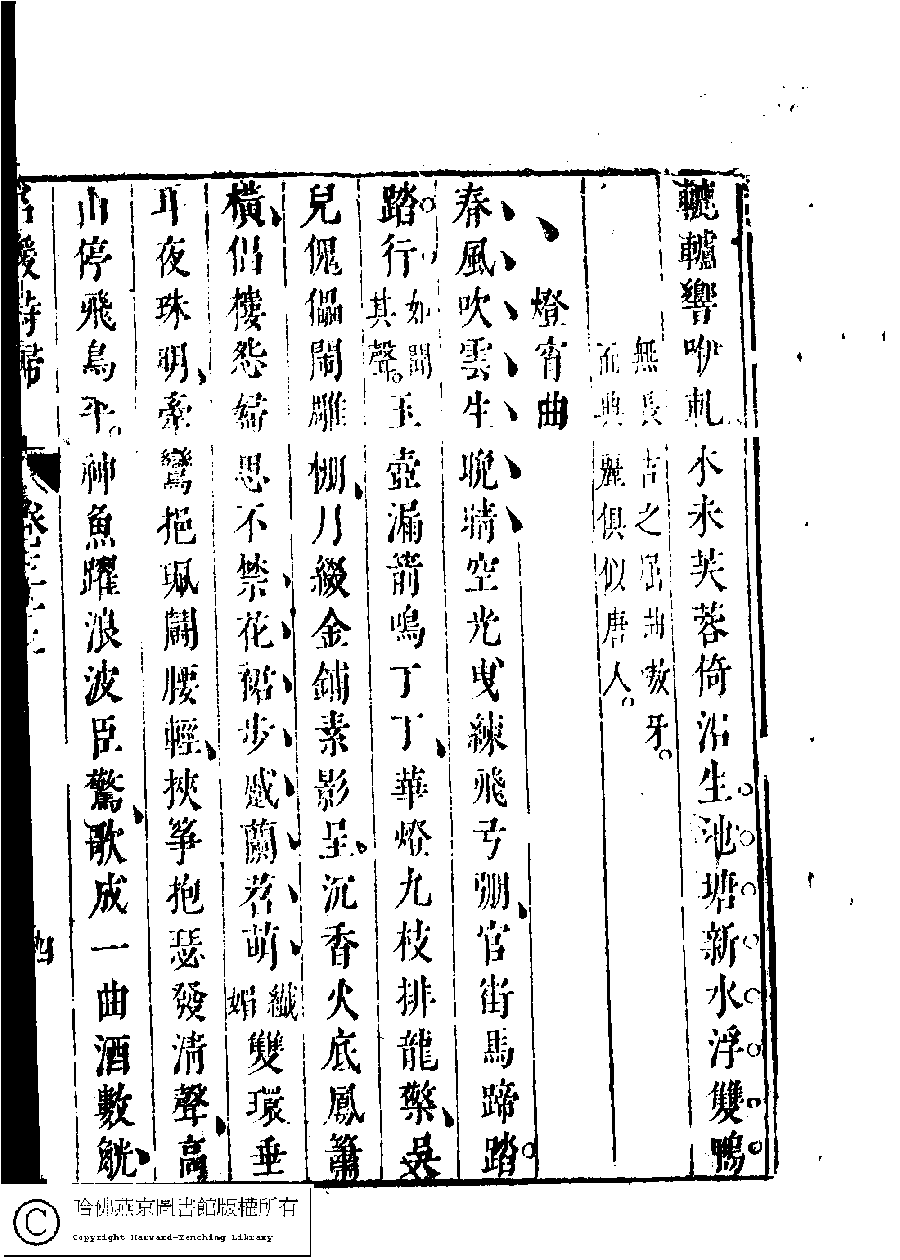 轆轤響咿軋水永芙蓉倚沼生池塘新水浮雙鴨
無長吉之屈曲敖牙
而典麗俱似唐人
燈宵曲
春風吹雲生晚晴空光曳練飛亏弸官街馬蹄踏
踏行如聞其聲玉壺漏箭鳴丁丁華燈九枝排龍藥吳
兒傀儡鬧雕棚月綴金鋪素影呈沉香火底鳳簫
橫倡樓怨婦思不禁花裙步蹙蘭苕萌纖媚雙環垂
耳夜珠明牽鸞挹珮鬪腰輕挾箏抱瑟發清聲高
山停飛鳥平神魚躍浪波臣驚歌成一曲酒數觥
名媛詩歸
卷三十
四
哈佛燕京圖書館版權所有
Copyright Harvard-Yenching Library